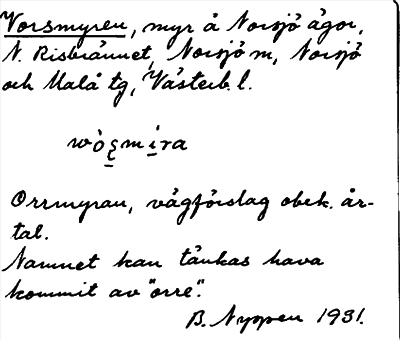 Vorsmyren, myr å Norsjö ägor,
N. Risbrännet, Norsjö sn, Norsjö
och Malå tg, Västerb. l.
Orrmyran, vägförslag obek. år-
tal.
Namnet kan tänkas hava
kommit av "orre".
B. Nyppen 1931.